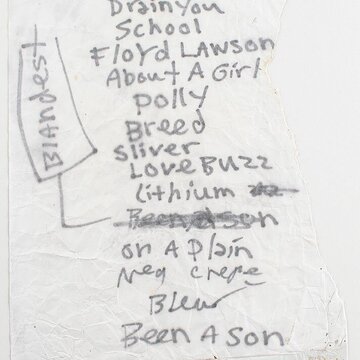 Drain You
School
Floyd LAWSON
About A Girl
polly
Breed
sliver
LOVE BUZZ
Lithium
Been a son
on A plain
Neg Creep
Blew
Been A Son
BlAndest